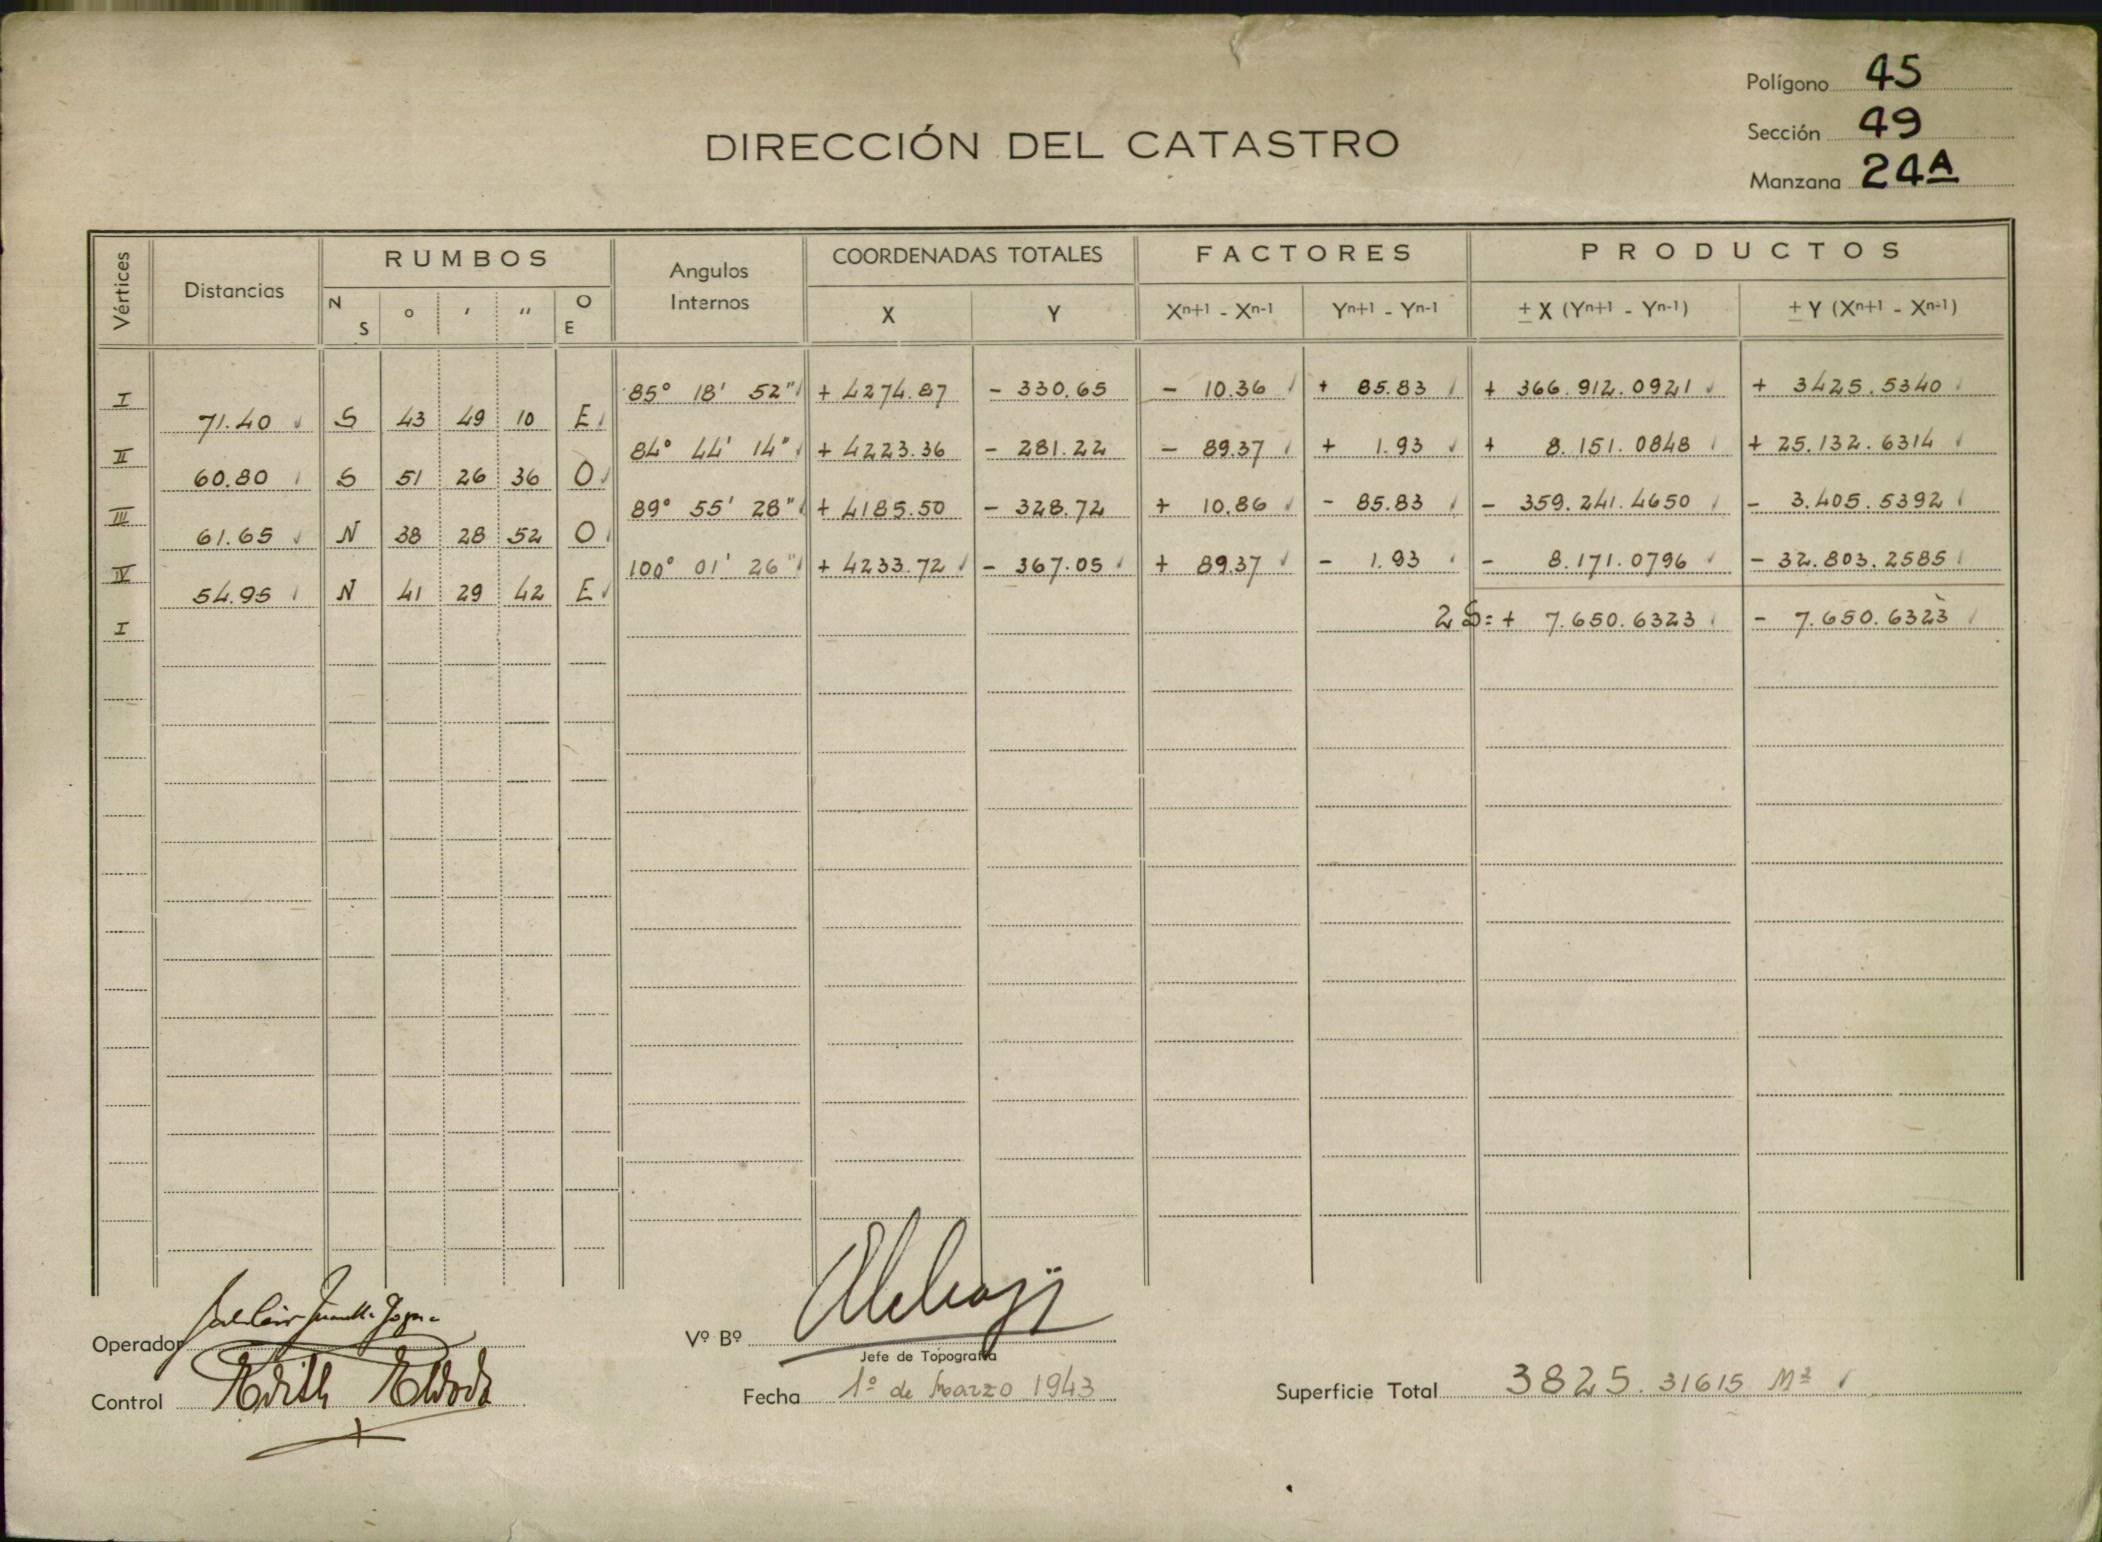 Polígono 45
Sección 49
Manzana 24A
DIRECCIÓN DEL CATASTRO
Vértices Distancias RUMBOS Angulos Internos COORDENADAS TOTALES FACTORES PRODUCTOS
N S ° ' " O E X Y Xn+1 - Xn-1 Yn+1 - Yn-1 ± X (Yn+1 - Yn-1) ± Y (Xn+1 - Xn-1)
I 85° 18' 52" + 4274.87 - 330.65 - 10.36 + 85.83 + 366.912.0921 + 3425.5340
71.40 S 43 49 10 E
II 84° 44' 14" + 4223.36 - 281.22 - 89.37 + 1.93 + 8.151.0848 + 25.132.6314
60.80 S 51 26 36 O
III 89° 55' 28" + 4185.50 - 328.72 + 10.86 - 85.83 - 359.241.4650 - 3.405.5392
61.65 N 38 28 52 O
IV 100° 01' 26" + 4233.72 - 367.05 + 89.37 - 1.93 - 8.171.0796 - 32.803.2585
54.95 N 41 29 42 E
I 2S = + 7.650.6323 - 7.650.6323
Operador
Vº Bº
Jefe de Topografía
Control Edith
Fecha 1º de Marzo 1943
Superficie Total 3825.31615 M2